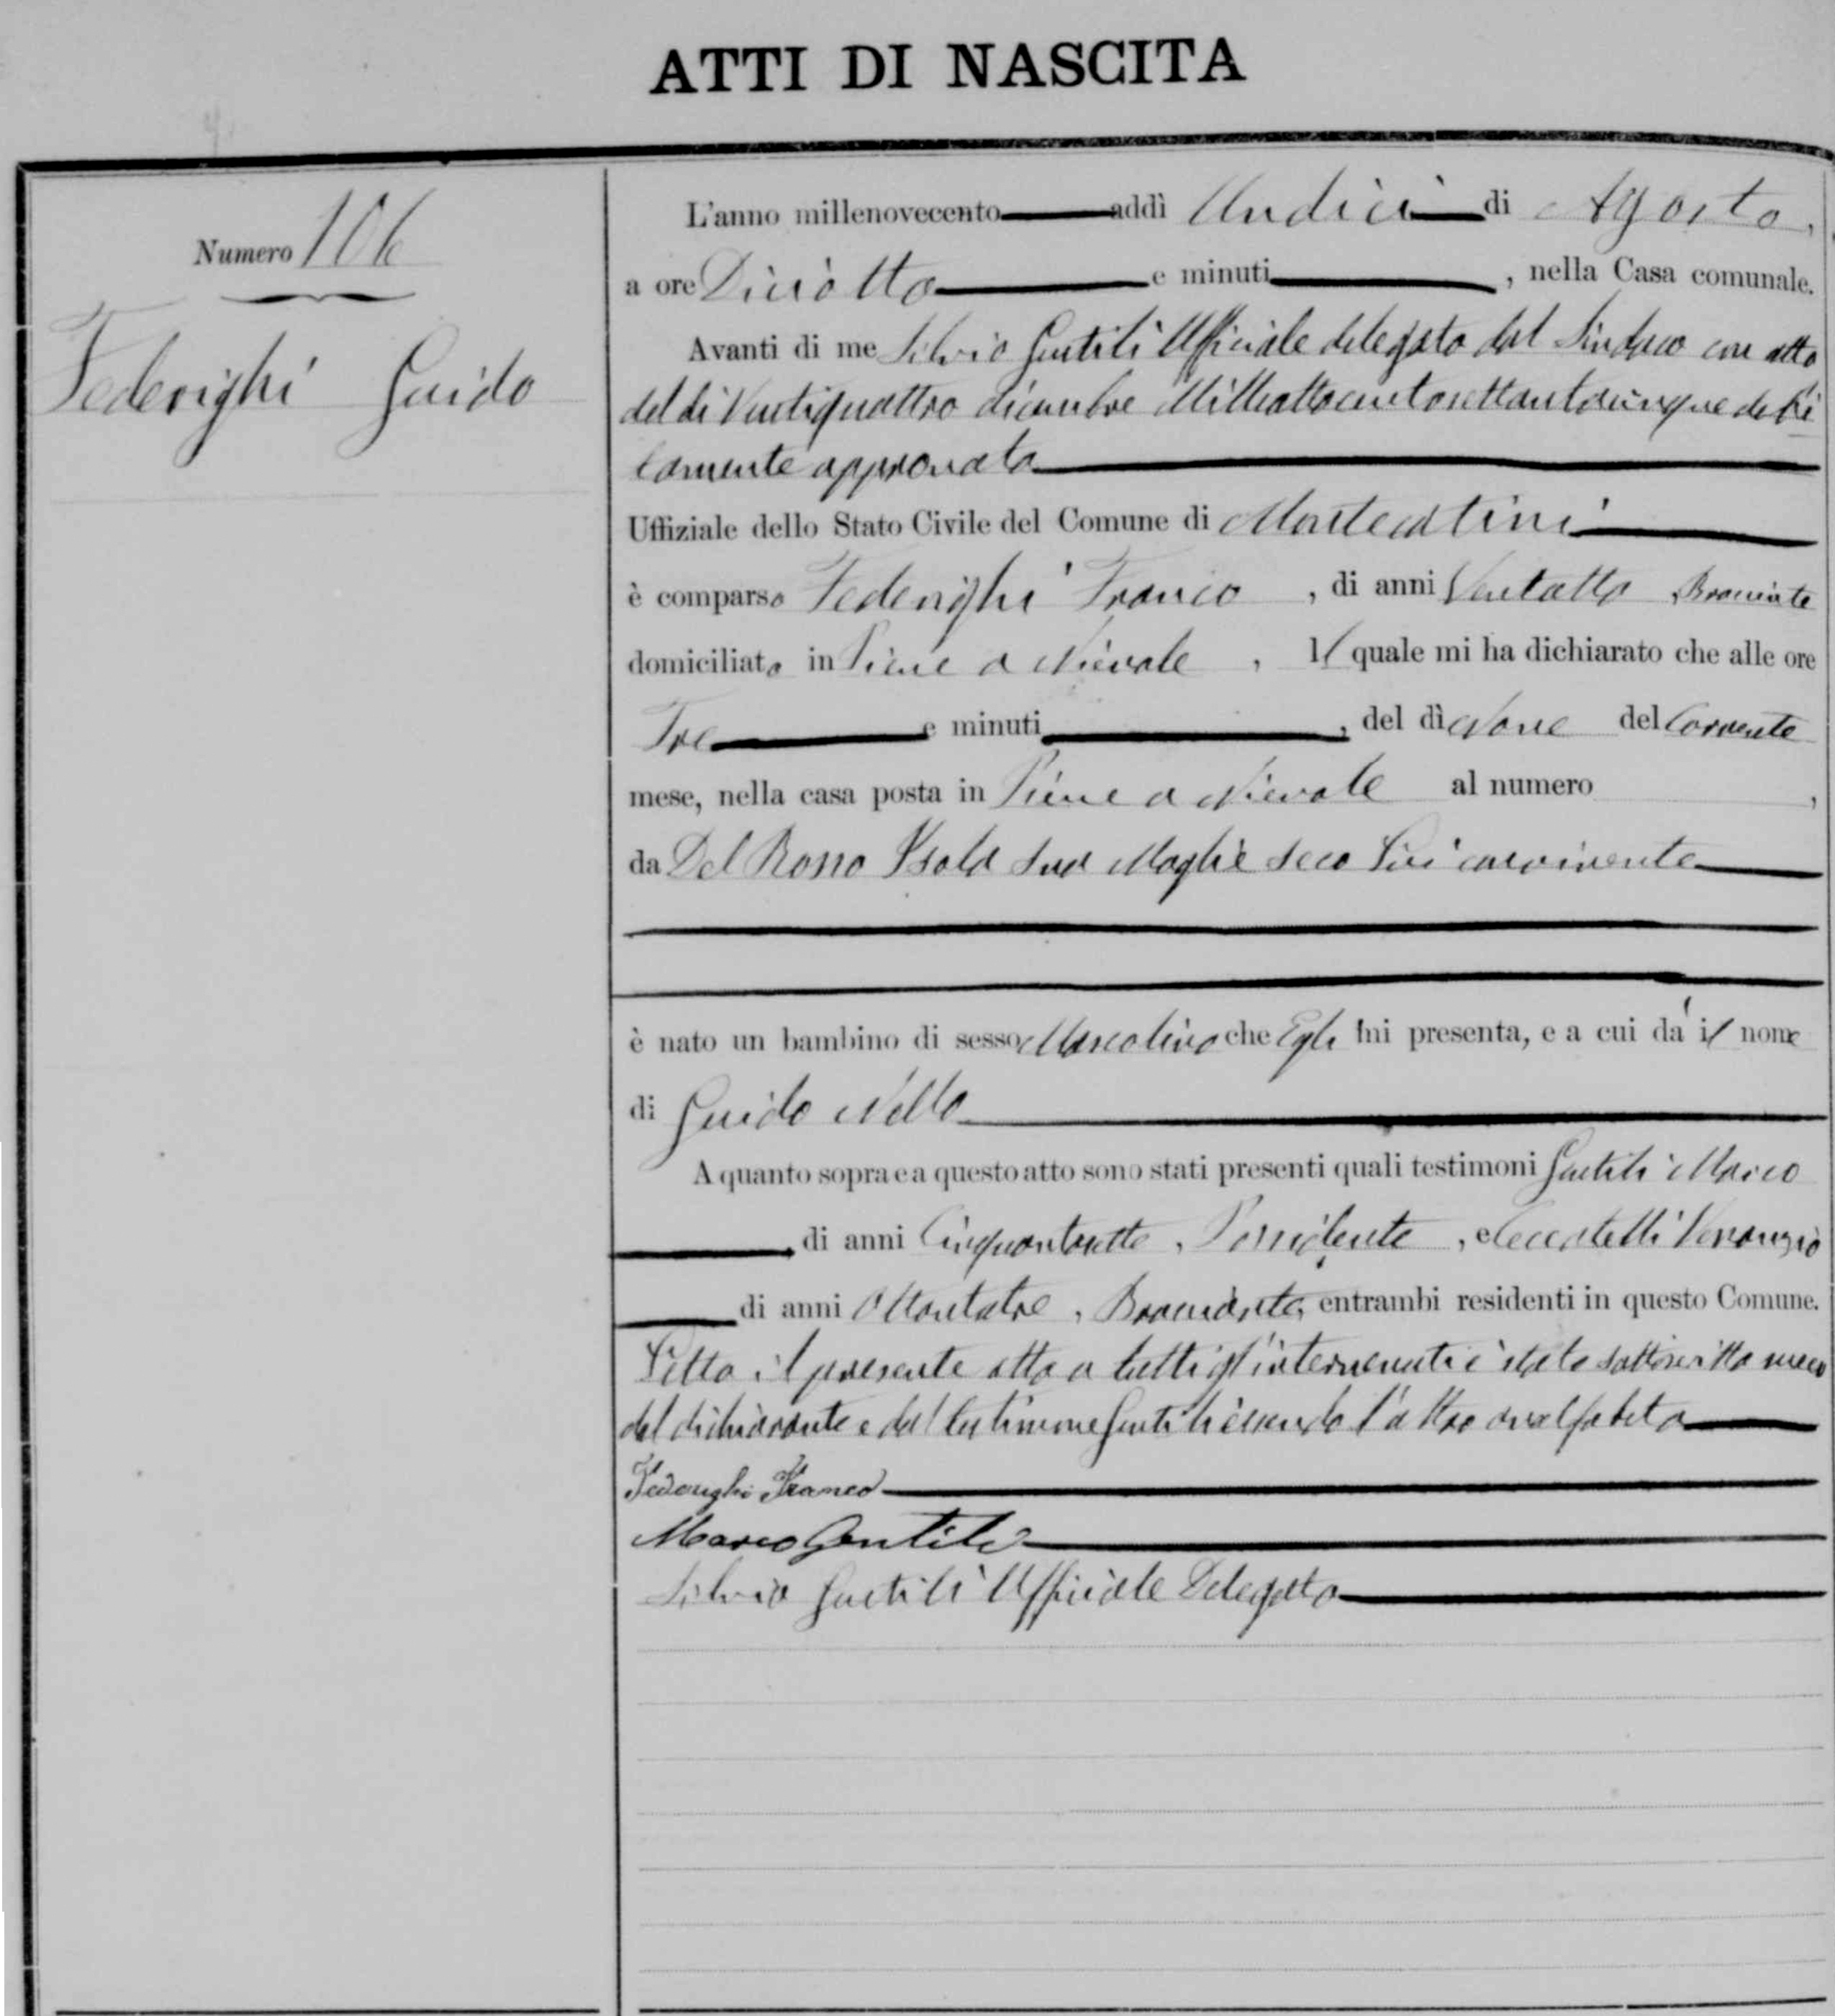 ATTI DI NASCITA
Numero 106
Federighi Guido
L'anno millenovecento addì Undici di Agosto,
a ore Diciotto e minuti , nella Casa comunale.
Avanti di me Silvio Gentili Ufficiale delegato dal Sindaco con atto
del di Ventiquattro dicembre Milleottocentosettantacinque debi
tamente approvato
Uffiziale dello Stato Civile del Comune di Montecatini
è comparso Federighi Franco , di anni Ventotto , Bracciante
domiciliato in Pieve a Nievole , Il quale mi ha dichiarato che alle ore
Tre e minuti , del dì Nove del Corrente
mese, nella casa posta in Pieve a Nievole al numero ,
da Del Rosso Isola sua Moglie seco Lui convivente
è nato un bambino di sesso Mascolino che Egli mi presenta, e a cui dà il nome
di Guido Nello
A quanto sopra e a questo atto sono stati presenti quali testimoni Gentili Marco
, di anni Cinquantasette , Possidente , e Ceccatelli Venanzio
di anni Ottantatre , Bracciante, entrambi residenti in questo Comune.
Letto il presente atto a tutti gl'intervenuti è stato sottoscritto meco
dal dichiarante e dal testimone Gentili essendo l'altro analfabeta
Federighi Franco
Marco Gentili
Silvio Gentili Ufficiale Delegato